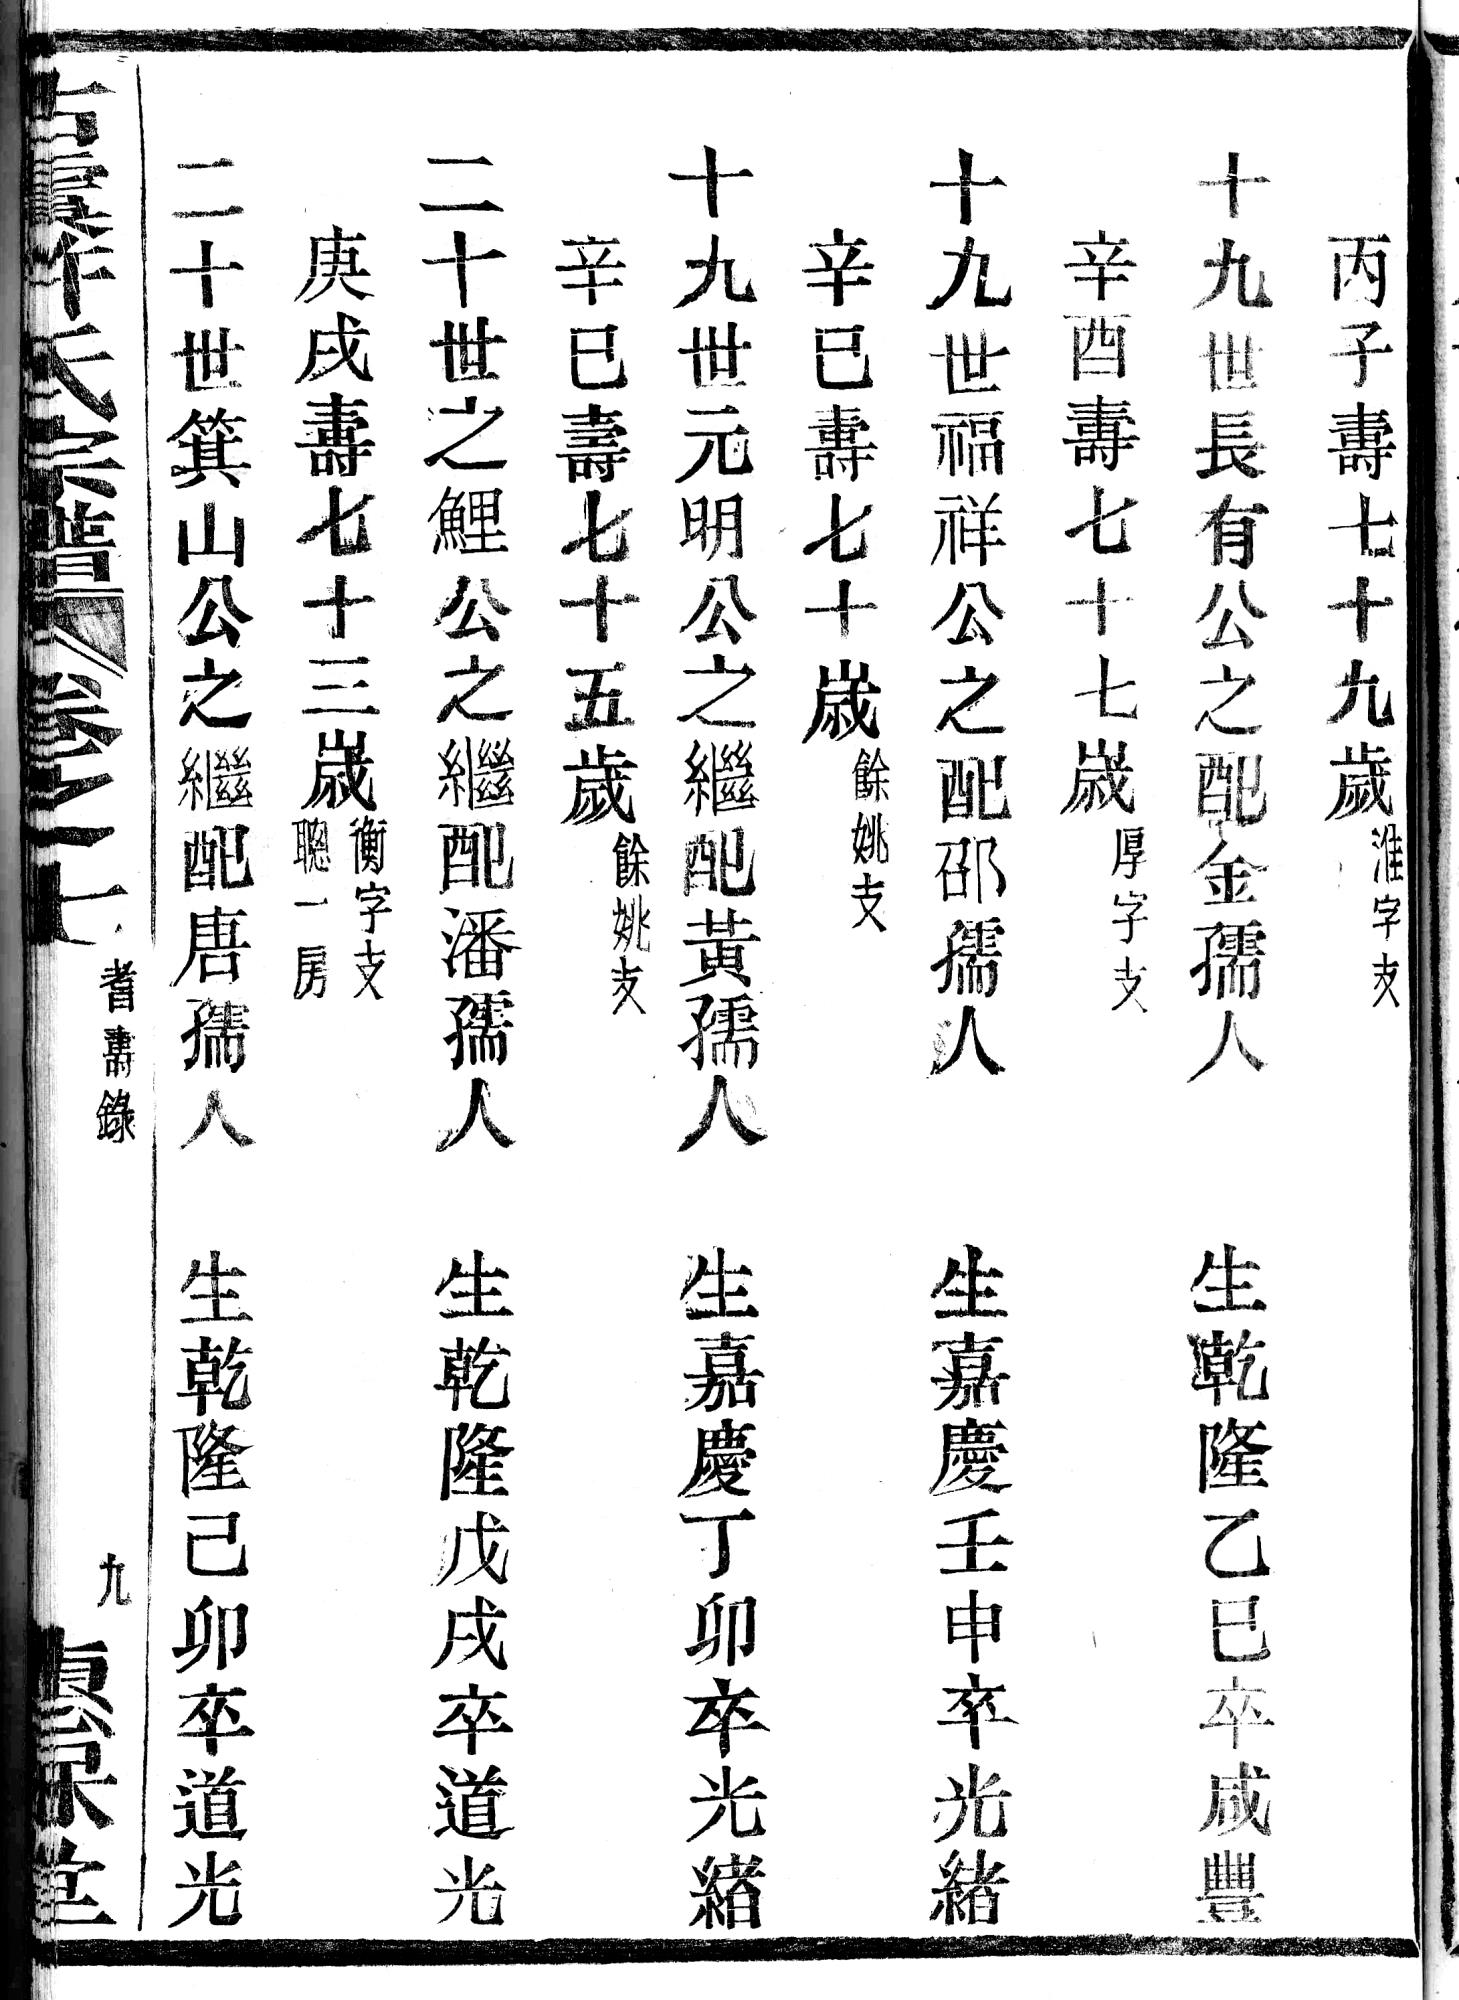 丙子壽七十九歲淮字支
十九世長有公之配金孺人 生乾隆乙巳卒咸豐
辛酉壽七十七歲厚字支
十九世福祥公之配邵孺人 生嘉慶壬申卒光緒
辛巳壽七十歲餘姚支
十九世元明公之繼配黃孺人 生嘉慶丁卯卒光緒
辛巳壽七十五歲餘姚支
二十世之鯉公之繼配潘孺人 生乾隆戊戌卒道光
庚戌壽七十三歲衡字支
聰一房
二十世箕山公之繼配唐孺人 生乾隆己卯卒道光
氏宗譜 卷之十 耆壽錄 九 惇保堂